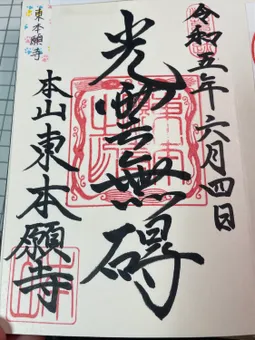 令和五年六月四日
光雲無碍
本山東本願寺
東本願寺